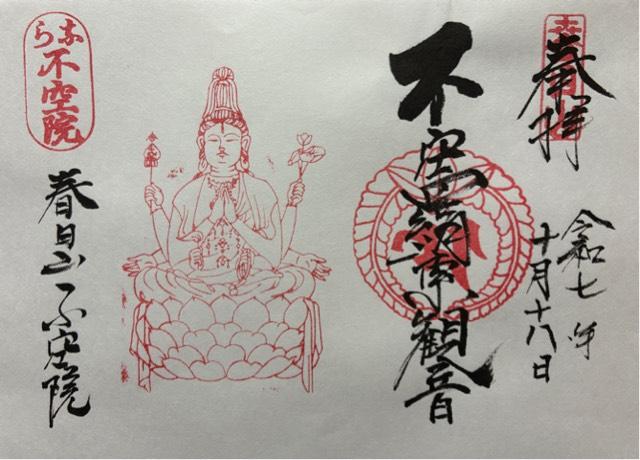 奉拝
令和七年
十月十八日
不空羂索観音
なら
不空院
春日山 不空院